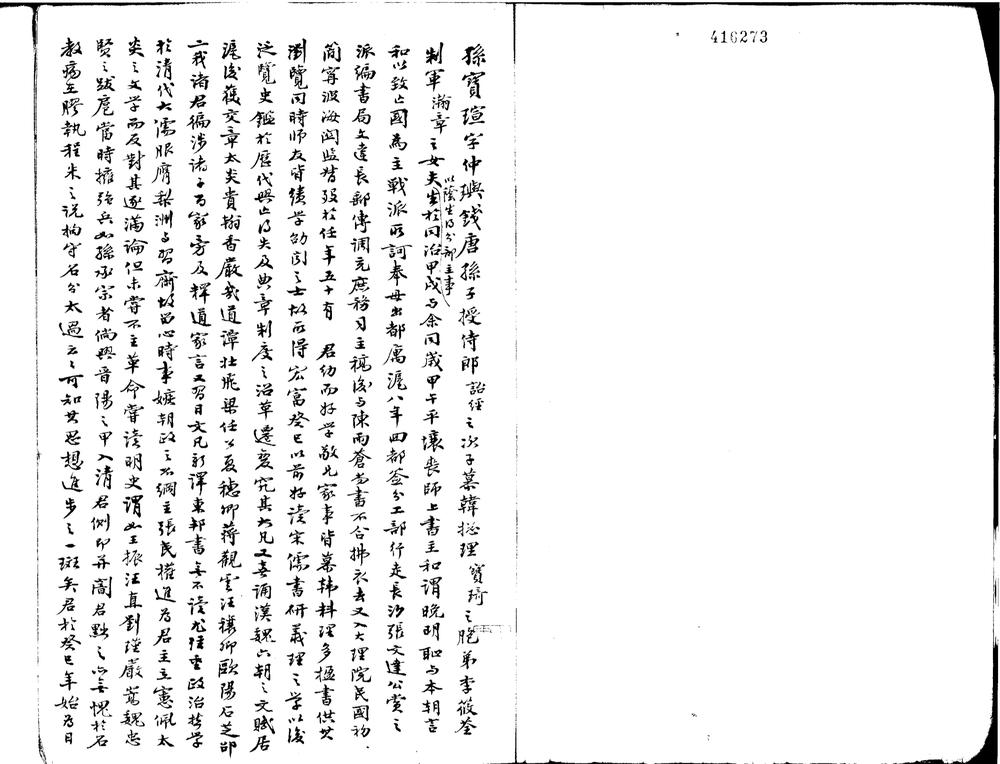 416273
孫寶瑄字仲璵錢唐孫子授侍郎詒經之次子慕韓總理寶琦之胞弟李筱荃
制軍瀚章之女夫以蔭生得分部主事生於同治甲戌与余同歲甲午平壤喪師上書主和謂晚明恥与本朝言
和以致亡國為主戰派所訶奉母出都寓滬八年回部簽分工部行走長沙張文達公賞之
派編書局文達長郵傳調充庶務司主稿後与陳雨蒼尚書不合拂衣去又入大理院民國初
簡寧波海関監督歿於任年五十有　君幼而好学敬兄家事皆慕韓料理多搵書供其
瀏覽同時师友皆績学劬聞之士故所得宏富癸巳以前好读宋儒書研義理之学以後
泛覽史鑑於歷代興亡得失及典章制度之沿革遷变究其大凡又喜诵漢魏六朝之文賦居
滬後獲交章太炎貴翰香嚴幾道譚壮飛梁任公夏穗卿蔣觀雲汪穰卿歐陽石芝邵
二我诸君徧涉诸子百家旁及釋道家言又習日文凡新譯東邦書無不读尤注重政治哲学
於清代大儒服膺梨洲与習齋故留心時事嫉朝政之不綱主張民權進為君主立憲佩太
炎之文学而反對其逐滿論但未嘗不主革命嘗读明史謂如王振汪直劉瑾嚴嵩魏忠
賢之跋扈當時擁強兵如孫承宗者倘興晋陽之甲入清君側即并闇君黜之亦無愧於名
教矯王膠執程朱之说拘守名分太過云云可知其思想進步之一斑矣君於癸巳年始為日